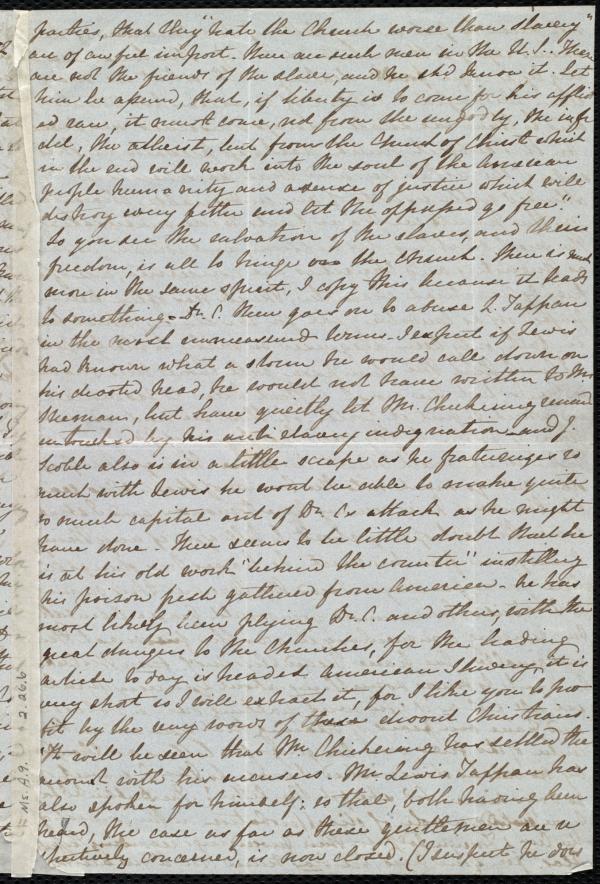 parties, that they "hate the Church worse than slavery"
are of awful import. There are such men in the U.S. They
are not the friends of the slave, and he shd know it. Let
him be assured, that, if liberty is to come for his afflict
ed race, it must come, not from the ungodly, the infi
del, the atheist, but from the Church of Christ which
in the end will work into the soul of the American
people humanity and a sense of justice which will
destroy every fetter and let the oppressed go free".
So you see the salvation of the slaves, and their
freedom, is all to hinge on the Church. There is much
more in the same spirit, I copy this because it leads
to something. Dr. C. then goes on to abuse L. Tappan
in the most unmeasured terms. I expect if Lewis
had known what a storm he would call down on
his devoted head, he would not have written to Mr
Sherman, but have quietly let Mr. Chickering remain
untouched by his anti slavery indignation and J.
Scoble also is in a little scrape as he fraternizes so
much with Lewis he wont be able to make quite
so much capital out of Dr. Cs attack as he might
have done. There seems to be little doubt that he
is at his old work "behind the counter" instilling
his poison fresh gathered from America. he has
most likely been plying Dr. C. and others, with the
great dangers to the Churches, for the leading
article to day is headed American Slavery, it is
very short so I will extract it, for I like you to pro
fit by the very words of these devout Christians.
"It will be seen that Mr Chickering has settled the
account with his accusers. Mr Lewis Tappan has
also spoken for himself: so that, both having been
heard, the case as far as these gentlemen are re
spectively concerned, is now closed. (I suspect he does
Ms. A.9. 2.26.6